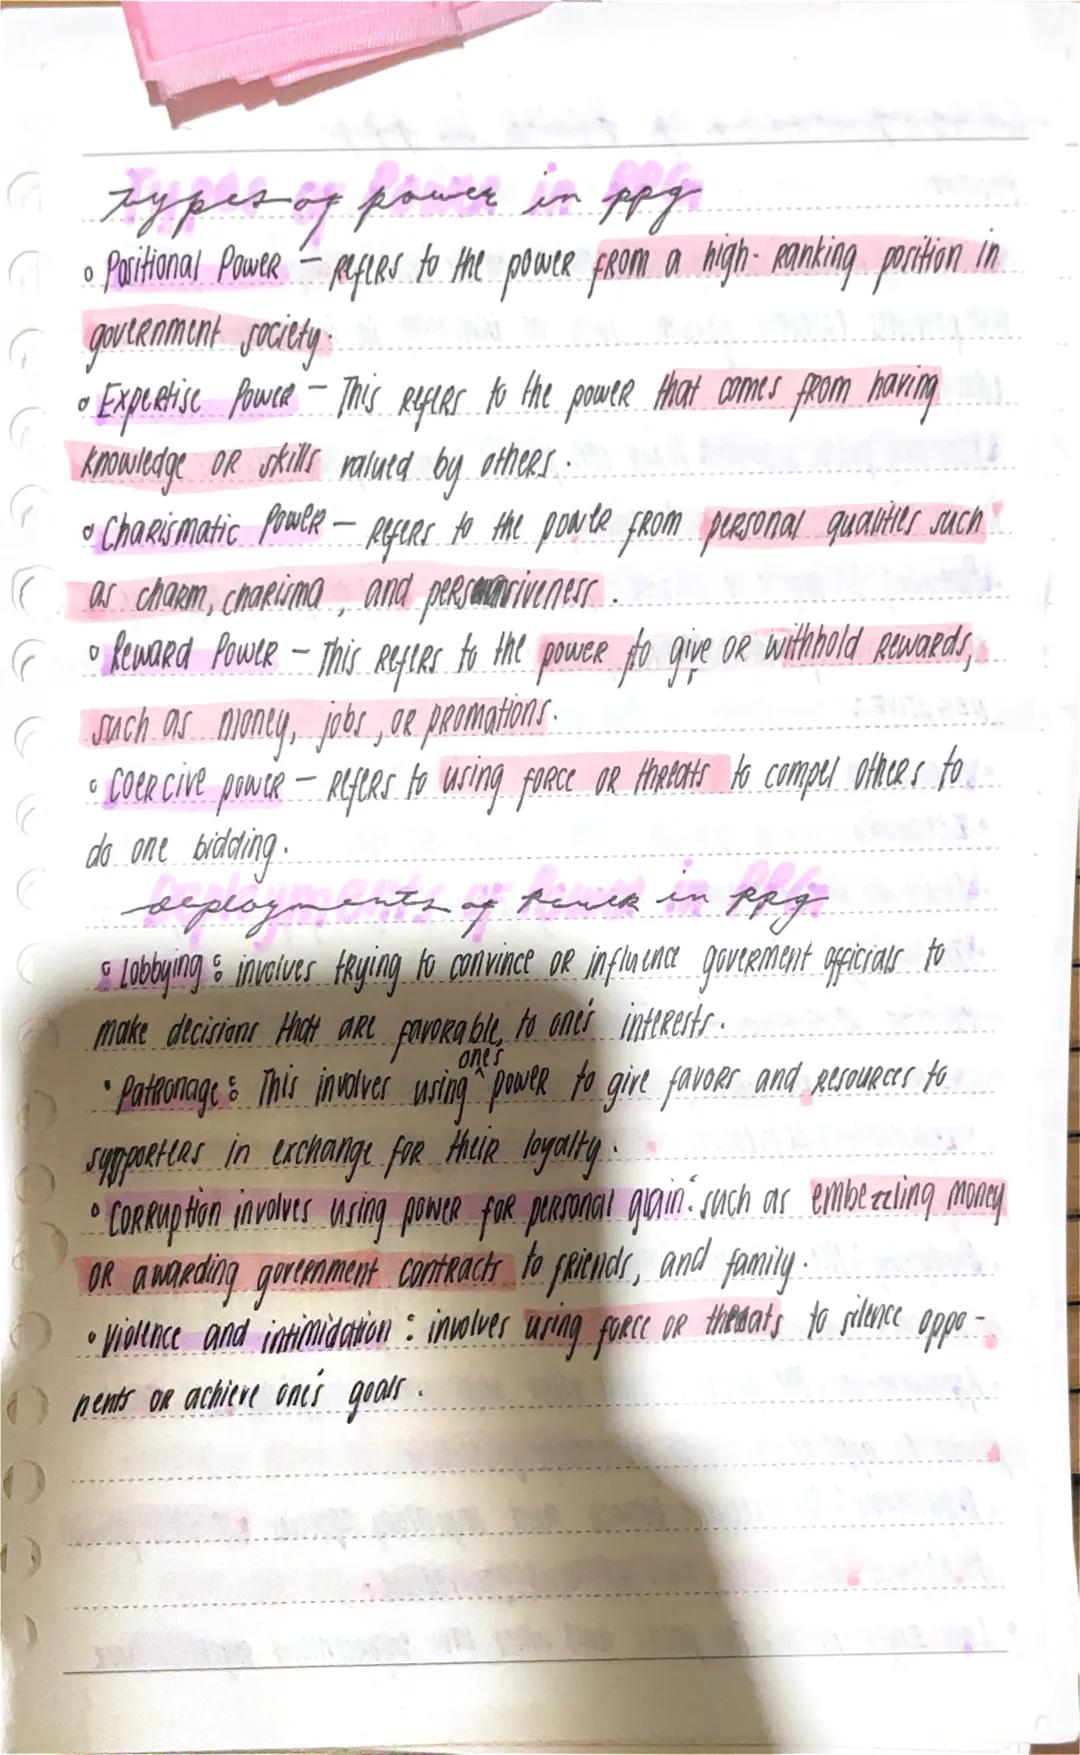 Types of Power in ppg
Positional Power – refers to the power from a high-ranking position in
government society.
Expertise Power – This refers to the power that comes from having
knowledge or skills valued by others.
Charismatic Power – refers to the power from personal qualities such
as charm, charisma, and persuasiveness.
Reward Power – This refers to the power to give or withhold rewards,
such as money, jobs, or promotions.
Coercive power – refers to using force or threats to compel others to
do one bidding.
Deployments of Power in PPG
Lobbying: involves trying to convince or influence goverment officials to
make decisions that are favorable, to one's interests.
Patronage: This involves using one's power to give favors and resources to
supporters in exchange for their loyalty.
Corruption involves using power for personal gain: such as embezzling money
or awarding government contracts to friends, and family.
Violence and intimidation: involves using force or threats to silence oppo-
nents or achieve one's goals.